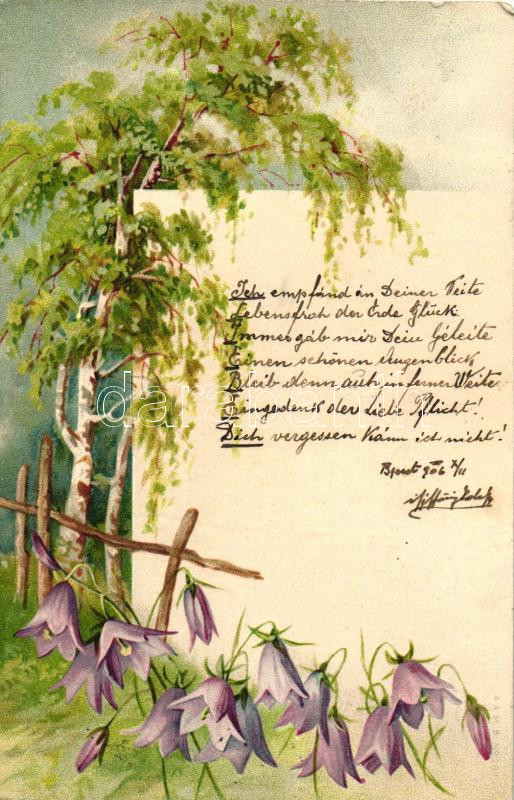 Ich empfand an Deiner Seite
Lebensfroh der Erde Glück.
Immer gab mir Dein Geleite
Einen schönen Augenblick
Bleib denn auch in ferner Weite
Eingedenk der Liebe Pflicht!
Dich vergessen kann ich nicht!
Bpest 906
darabanth